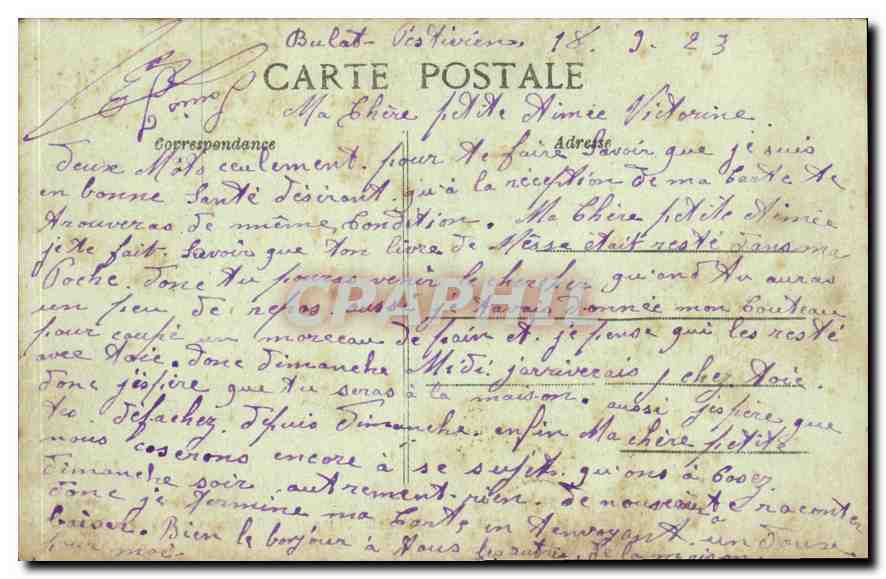 Bulat-Pestivien 18. 9. 23
CARTE POSTALE
Ma Chère petite Aimée Victorine
Correspondance Adresse
deux Môts ceulement. pour te faire Savoir que je suis
en bonne Santé désirant qu'à la réception de ma Carte te
trouveras de même Condition. Ma Chère petite Aimée
je te fait Savoir que ton livre de Mêsse était resté dans ma
Poche. donc tu pourra venir le chercher quand tu auras
un peu de repos aussi je t'avais donnée mon Couteau
pour coupé un morceau de pain et je pense qui les resté
avec toie. donc dimanche Midi j'arriverais chez toie.
donc j'éspère que tu seras à la maison. aussi j'espère que
tes défachez depuis dimanche. enfin Ma chère petite
nous coserons encore à se sujet. qu'ons à Cosez
dimanche soir. autrement rien de nouveau à te raconter
donc je termine ma Carte en t'envoyant un doux
baiser. Bien le bonjour à tous les autres de la maison
pour moi.
CPAPHIL